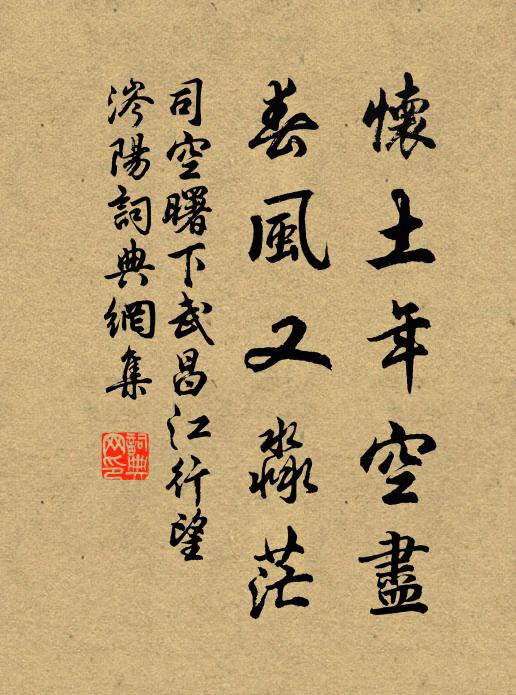 懷土年空盡
春風又淼茫
司空曙下武昌江行望
涔陽詞典網集
詞典網印